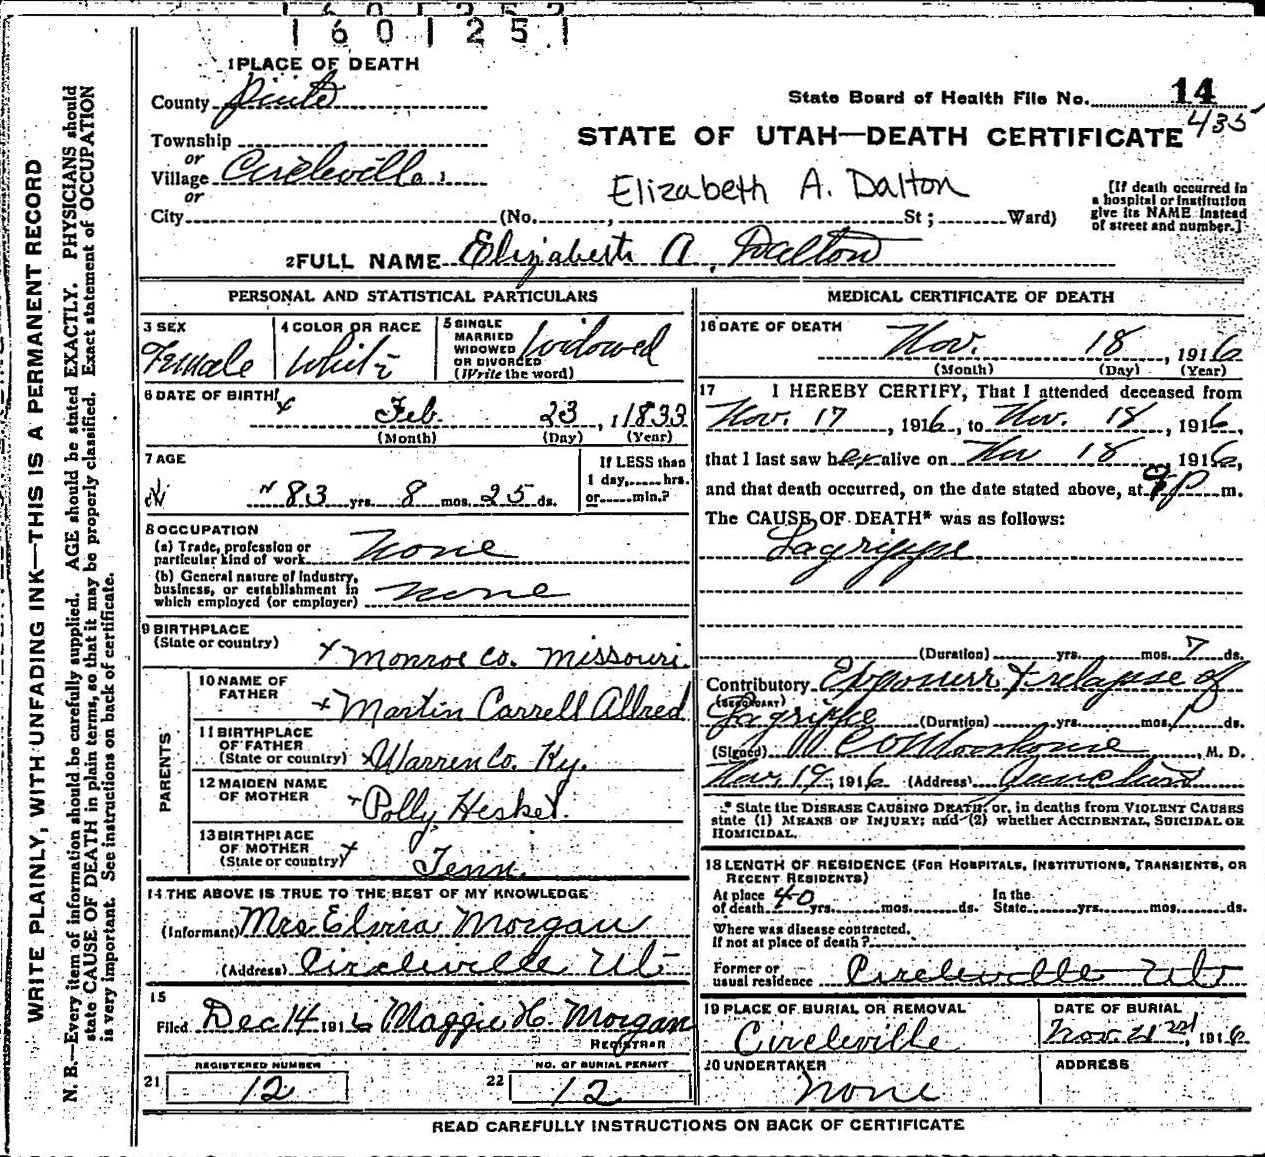 1601251
1 PLACE OF DEATH
County Piute
State Board of Health File No. 14
435
Township
or
Village Circleville
or
STATE OF UTAH—DEATH CERTIFICATE
Elizabeth A. Dalton
City (No. , St ; Ward)
[If death occurred in
a hospital or institution
give its NAME instead
of street and number.]
2 FULL NAME Elizabeth A. Dalton
WRITE PLAINLY, WITH UNFADING INK—THIS IS A PERMANENT RECORD
N. B.—Every item of information should be carefully supplied. AGE should be stated EXACTLY. PHYSICIANS should
state CAUSE OF DEATH in plain terms, so that it may be properly classified. Exact statement of OCCUPATION
is very important. See instructions on back of certificate.
PERSONAL AND STATISTICAL PARTICULARS
3 SEX
Female
4 COLOR OR RACE
White
5 SINGLE
MARRIED
WIDOWED
OR DIVORCED
(Write the word)
Widowed
6 DATE OF BIRTH
Feb. 23, 1833
(Month) (Day) (Year)
7 AGE
83 yrs. 8 mos. 25 ds.
If LESS than
1 day, hrs.
or min.?
8 OCCUPATION
(a) Trade, profession or
particular kind of work None
(b) General nature of industry,
business, or establishment in
which employed (or employer) none
9 BIRTHPLACE
(State or country)
x Monroe Co. Missouri
PARENTS
10 NAME OF
FATHER
x Martin Carrell Allred
11 BIRTHPLACE
OF FATHER
(State or country) x Warren Co. Ky.
12 MAIDEN NAME
OF MOTHER
Polly Hesket
13 BIRTHPLACE
OF MOTHER
(State or country) x
Tenn.
14 THE ABOVE IS TRUE TO THE BEST OF MY KNOWLEDGE
(Informant) Mrs. Elvira Morgan
(Address) Circleville Ut
15
Filed Dec 14 1916 Maggie H. Morgan
REGISTRAR
21 REGISTERED NUMBER
12
22 NO. OF BURIAL PERMIT
12
MEDICAL CERTIFICATE OF DEATH
16 DATE OF DEATH
Nov. 18, 1916
(Month) (Day) (Year)
17 I HEREBY CERTIFY, That I attended deceased from
Nov. 17, 1916, to Nov. 18, 1916,
that I last saw her alive on Nov 18 1916,
and that death occurred, on the date stated above, at p m.
The CAUSE OF DEATH* was as follows:
Lagrippe
(Duration) yrs. mos. 7 ds.
Contributory Exposure & relapse of
(SECONDARY)
Lagrippe (Duration) yrs. mos. 1 ds.
(Signed) M. D.
Nov. 19, 1916 (Address) Junction
* State the DISEASE CAUSING DEATH; or, in deaths from VIOLENT CAUSES
state (1) MEANS OF INJURY; and (2) whether ACCIDENTAL, SUICIDAL OR
HOMICIDAL.
18 LENGTH OF RESIDENCE (FOR HOSPITALS, INSTITUTIONS, TRANSIENTS, OR
RECENT RESIDENTS)
At place
of death 40 yrs. mos. ds.
In the
State yrs. mos. ds.
Where was disease contracted,
If not at place of death?
Former or
usual residence Circleville Ut
19 PLACE OF BURIAL OR REMOVAL
Circleville
DATE OF BURIAL
Nov. 21, 1916
20 UNDERTAKER
None
ADDRESS
READ CAREFULLY INSTRUCTIONS ON BACK OF CERTIFICATE